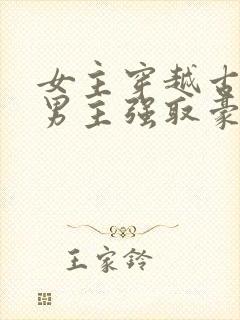 女主穿越古
男主强取豪
王家铃